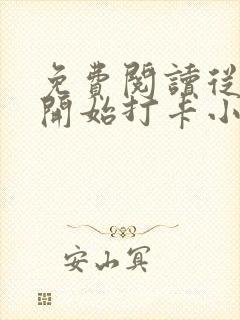 免費閱讀從
開始打卡小
安山冥